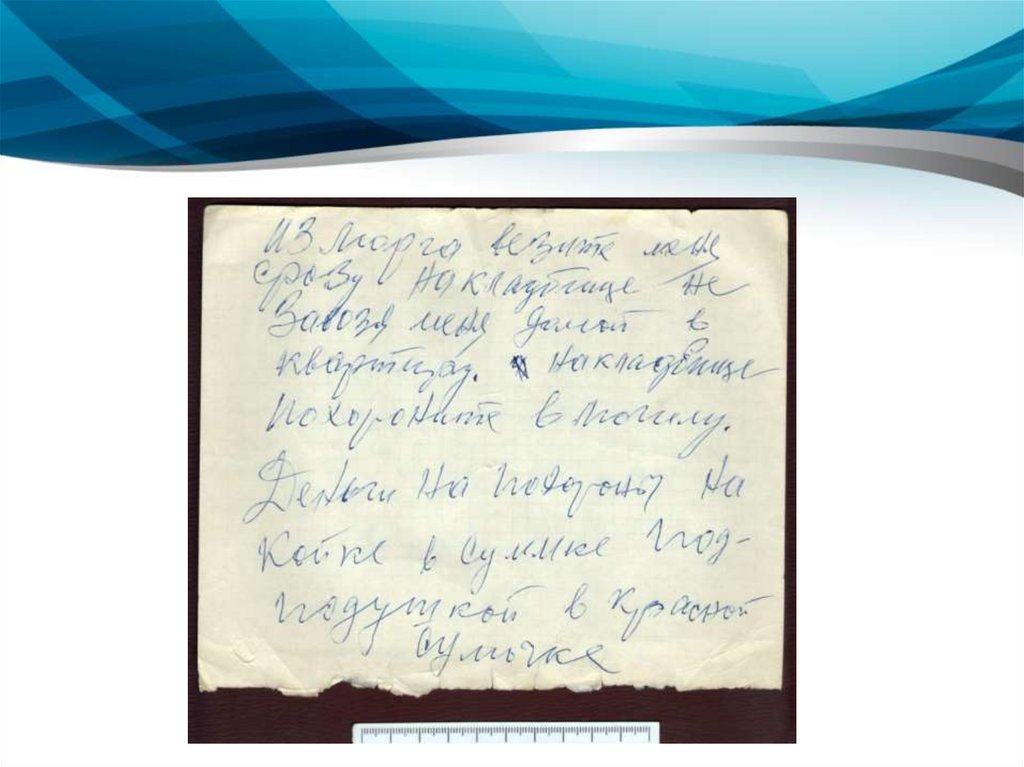 из морга везите меня
сразу на кладбище не
Завозя меня домой в
квартиру. на кладбище
похороните в могилу.
Деньги на похороны на
койке в суммке под-
подушкой в красной
сумочке